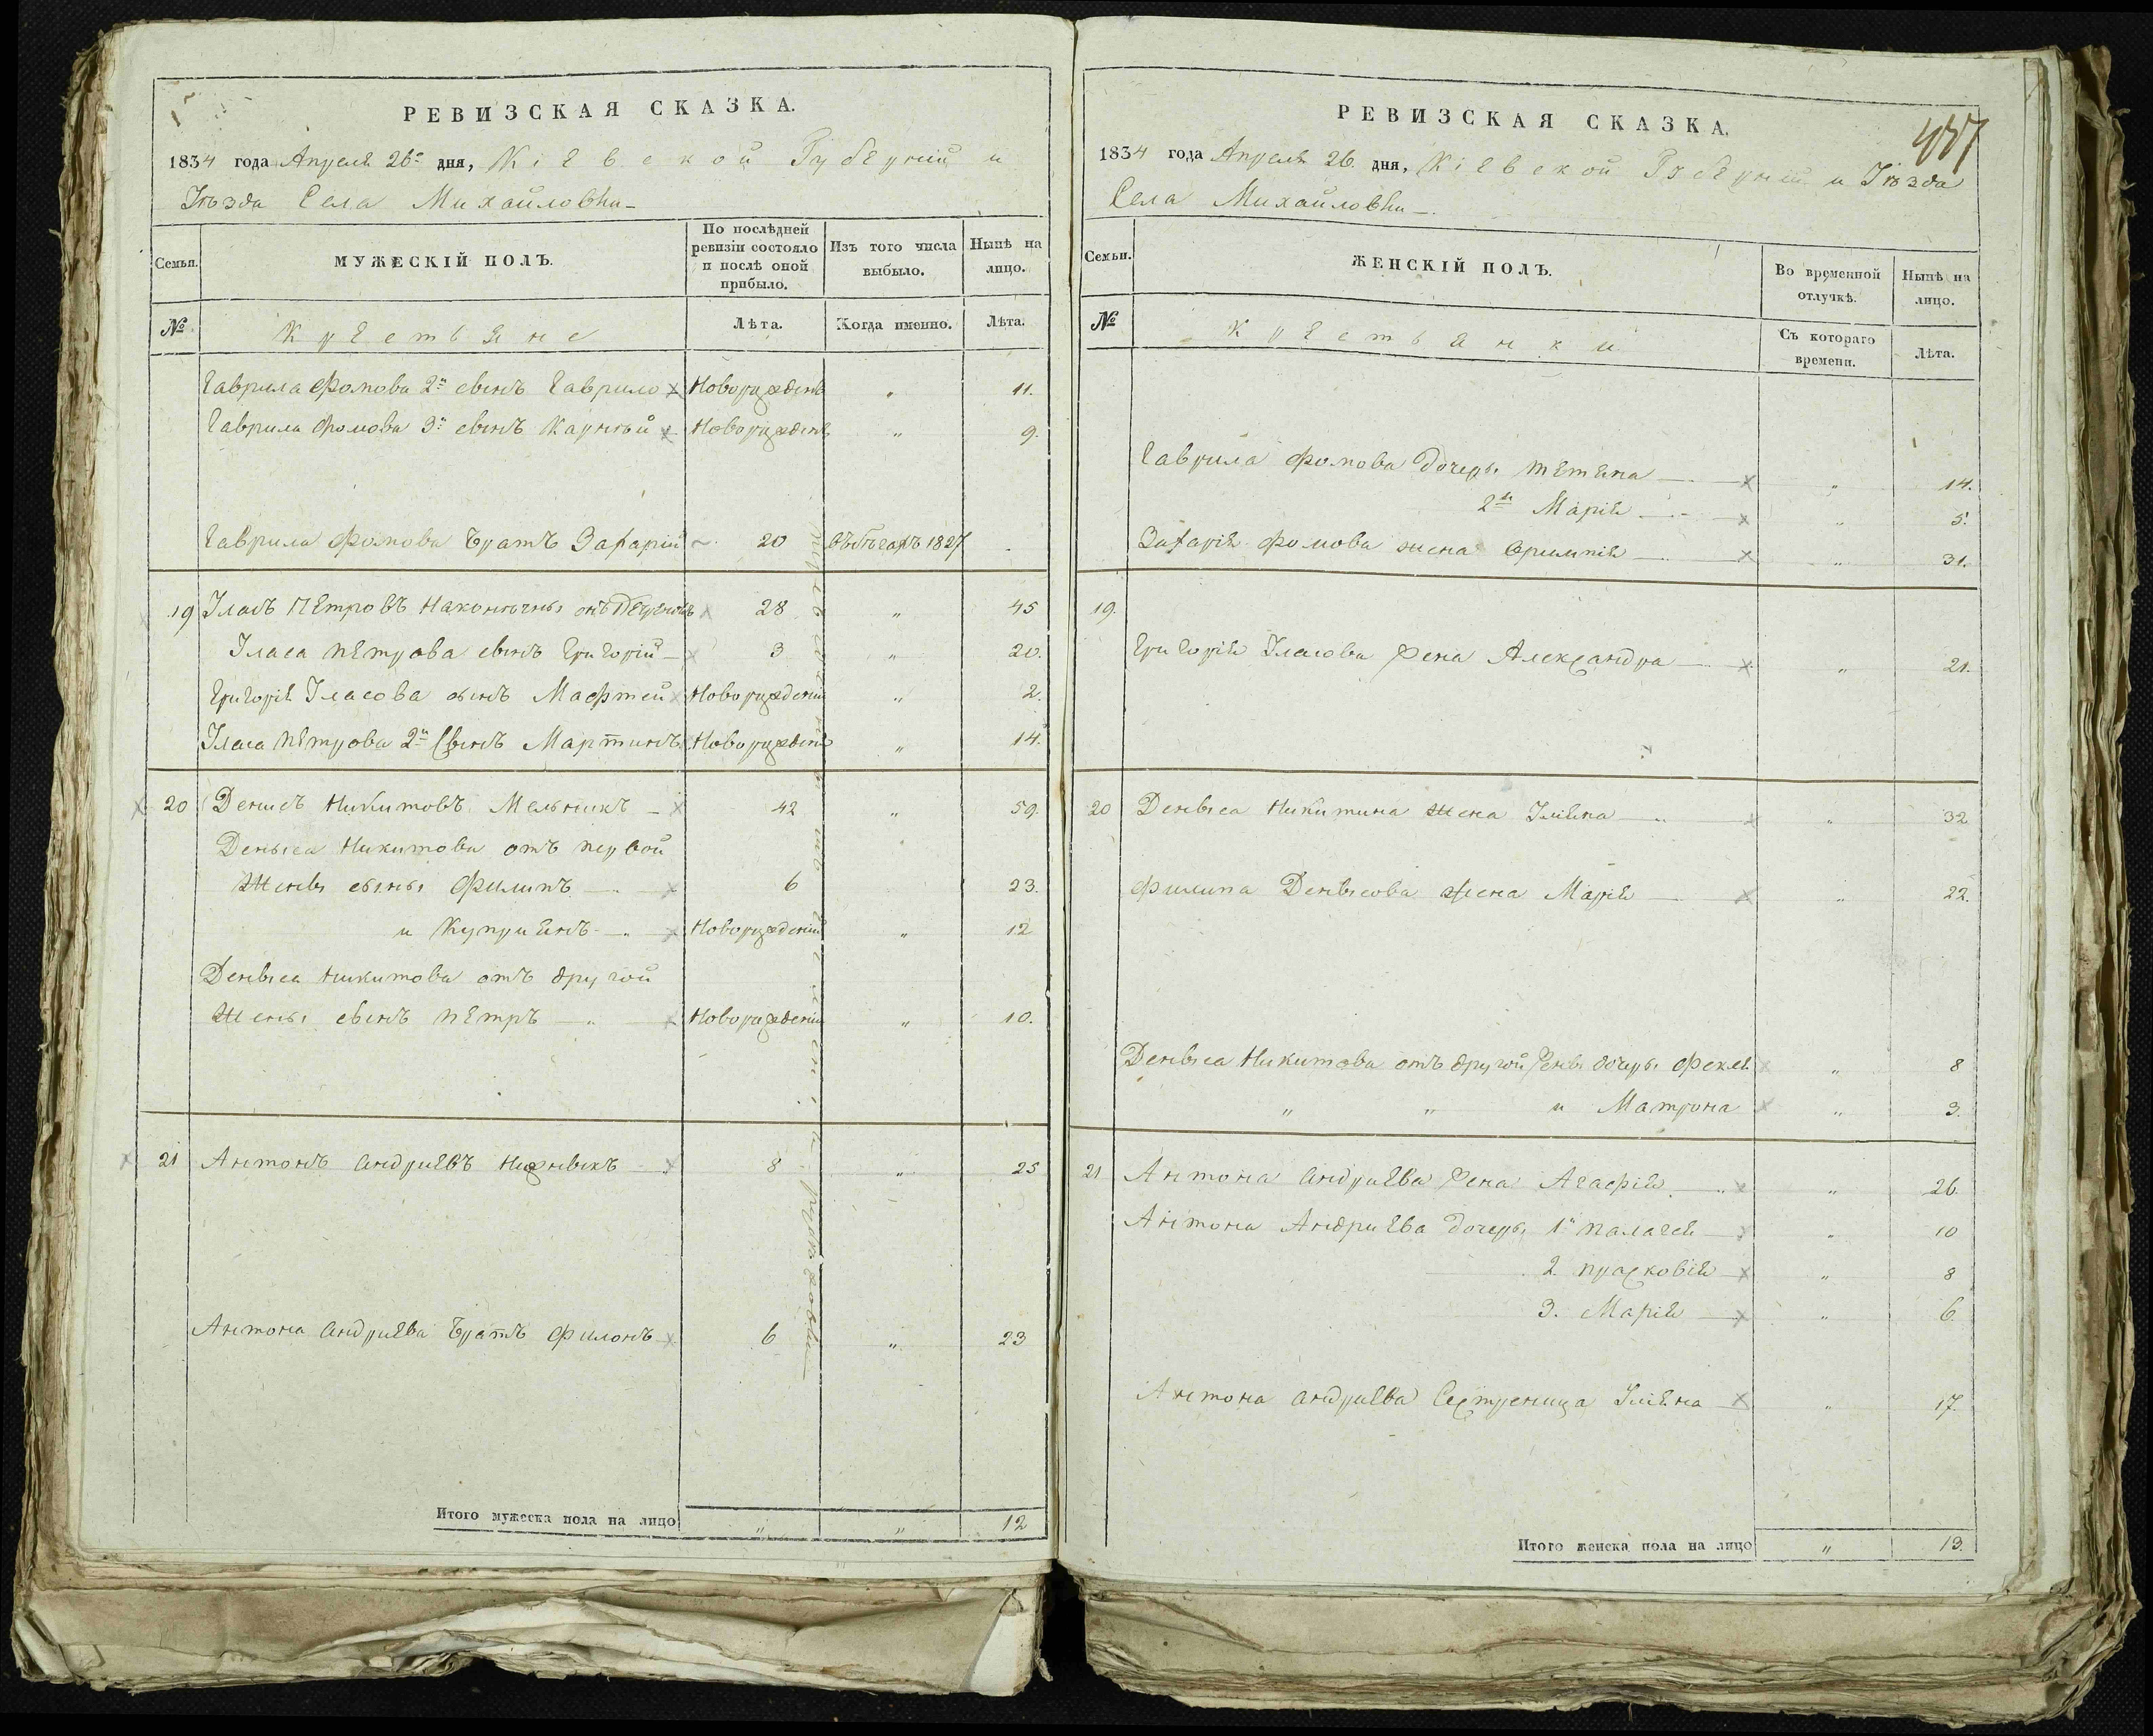 РЕВИЗСКАЯ СКАЗКА.
1834 года Апреля 26го дня, Кіевской Губерніи и
Уѣзда Села Михайловки
Семьи.
МУЖЕСКІЙ ПОЛЪ.
По послѣдней ревизіи состояло и послѣ оной прибыло.
Изъ того числа выбыло.
Нынѣ на лицо.
№
Крестьяне
Лѣта.
Когда именно.
Лѣта.
Гаврила Фомова 2й сынъ Гаврило Новорожденъ " 11.
Гаврила Фомова 3й сынъ Карпъ Новорожденъ " 9.
Гаврила Фомова братъ Захарій 20 1827
19 Уласъ Петровъ онъ же 28 " 45
Уласа Петрова сынъ Григорій 3 " 20.
Григорія Уласова сынъ Мафтей Новорожденны " 2.
Уласа Петрова 2й сынъ Мартинъ Новорожденъ " 14.
20 Денисъ Никитовъ Мельникъ 42 " 59.
Деныса Никитова отъ первой
Жены сыны Филипъ 6 23.
и Куприянъ Новорожденны " 12
Деныса Никитова отъ другой
Жены сынъ Петръ Новорожденны " 10.
21 Антонъ Андриевъ 8 " 25
Антона Андриева братъ Филонъ 6 " 23
Итого мужеска пола на лицо " " 12
РЕВИЗСКАЯ СКАЗКА.
477
1834 года Апреля 26. дня, Кіевской Губерніи и Уѣзда
Села Михайловки
Семьи.
ЖЕНСКІЙ ПОЛЪ.
Во временной отлучкѣ.
Нынѣ на лицо.
№
Крестьянки
Съ котораго времени.
Лѣта.
Гаврила Фомова дочеры Тетяна " 14.
2я Марія " 5.
Захарія Фомова жена " 31.
19.
Григорія Уласова жена Александра " 21.
20 Деныса Никитина жена Уліяна " 32
Филипа Денысова жена Марія " 22.
Деныса Никитова отъ другой жены дочеры Фекля " 8
" " и Матрона " 3.
21 Антона Андриева жена Агафія " 26.
Антона Андриева дочеры 1я Палагея " 10
2. Прасковія " 8
3. Марія " 6.
Антона Андриева Сестреница Уліяна " 17.
Итого женска пола на лицо " 13.